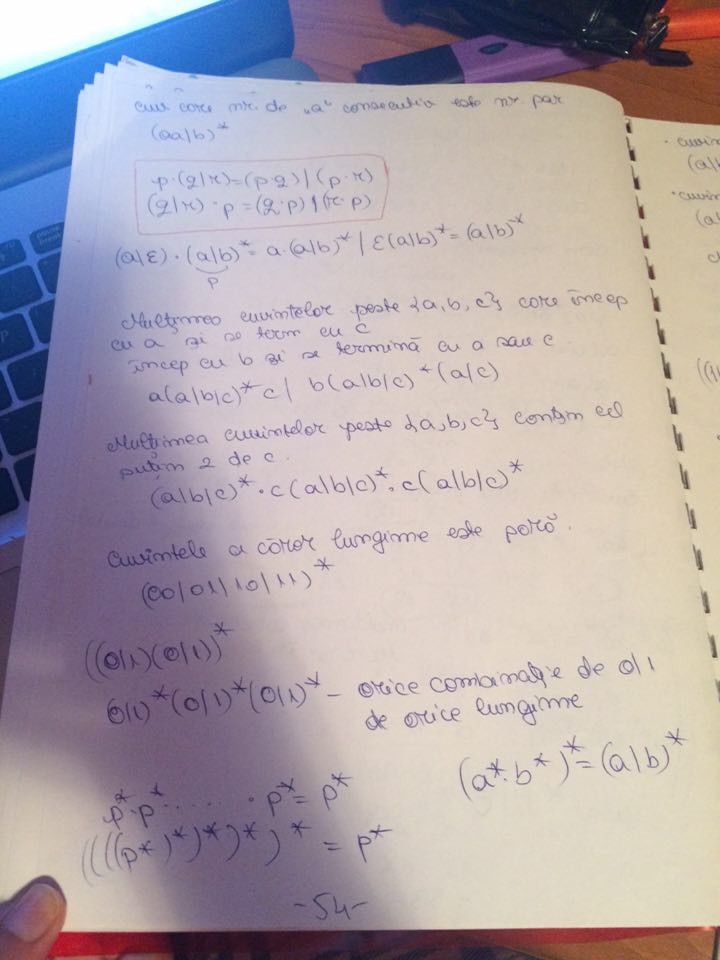 cuv care nr. de „a“ consecutiv este nr. par
(aa/b)*
p·(q/r)=(p·q)/(p·r)
(q/r)·p=(q·p)/(r·p)
(a/ε)·(a/b)*=a·(a/b)*/ε(a/b)*=(a/b)*
p
Mulțimea cuvintelor peste {a,b,c} care încep
cu a și se term cu c
încep cu b și se termină cu a sau c.
a(a/b/c)*c/ b(a/b/c)*(a/c)
Mulțimea cuvintelor peste {a,b,c} conțin cel
puțin 2 de c.
(a/b/c)*·c(a/b/c)*·c(a/b/c)*
Cuvintele a căror lungime este pară.
(00/01/10/11)*
((0/1)(0/1))*
0/1)*(0/1)*(0/1)* - orice combinație de 0/1
de orice lungime
(a*·b*)*=(a/b)*
p*·p*·.....·p*=p*
((((p*)*)*)*)* = p*
-54-
cuvin
(a/b
cuvin
(a/